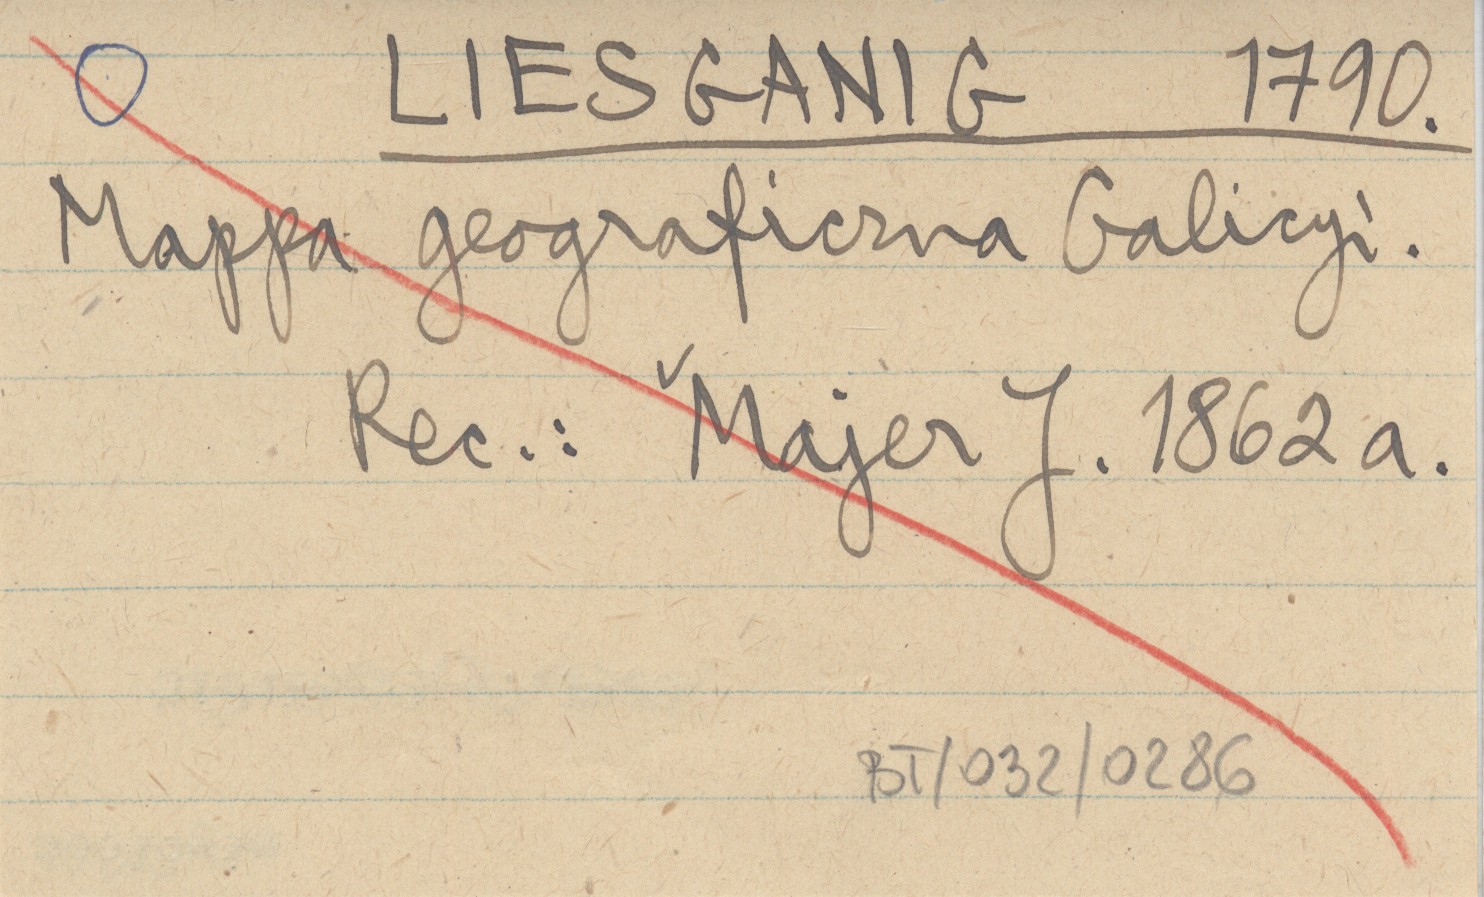 LIESGANIG 1790.
Mappa geograficzna Galicyi.
Rec.: Majer J. 1862 a.
BT/032/0286